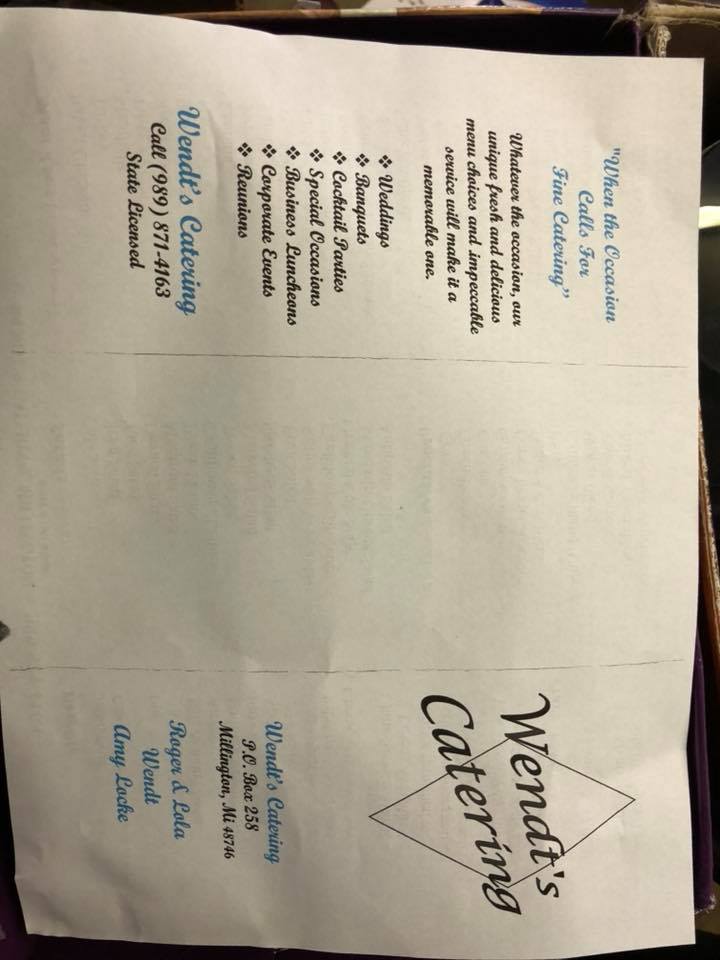 "When the Occasion
Calls For
Fine Catering"
Whatever the occasion, our
unique fresh and delicious
menu choices and impeccable
service will make it a
memorable one.
❖ Weddings
❖ Banquets
❖ Cocktail Parties
❖ Special Occasions
❖ Business Luncheons
❖ Corporate Events
❖ Reunions
Wendt's Catering
Call (989) 871-4163
State Licensed
Wendt's
Catering
Wendt's Catering
P.O. Box 258
Millington, Mi 48746
Roger & Lola
Wendt
Amy Locke